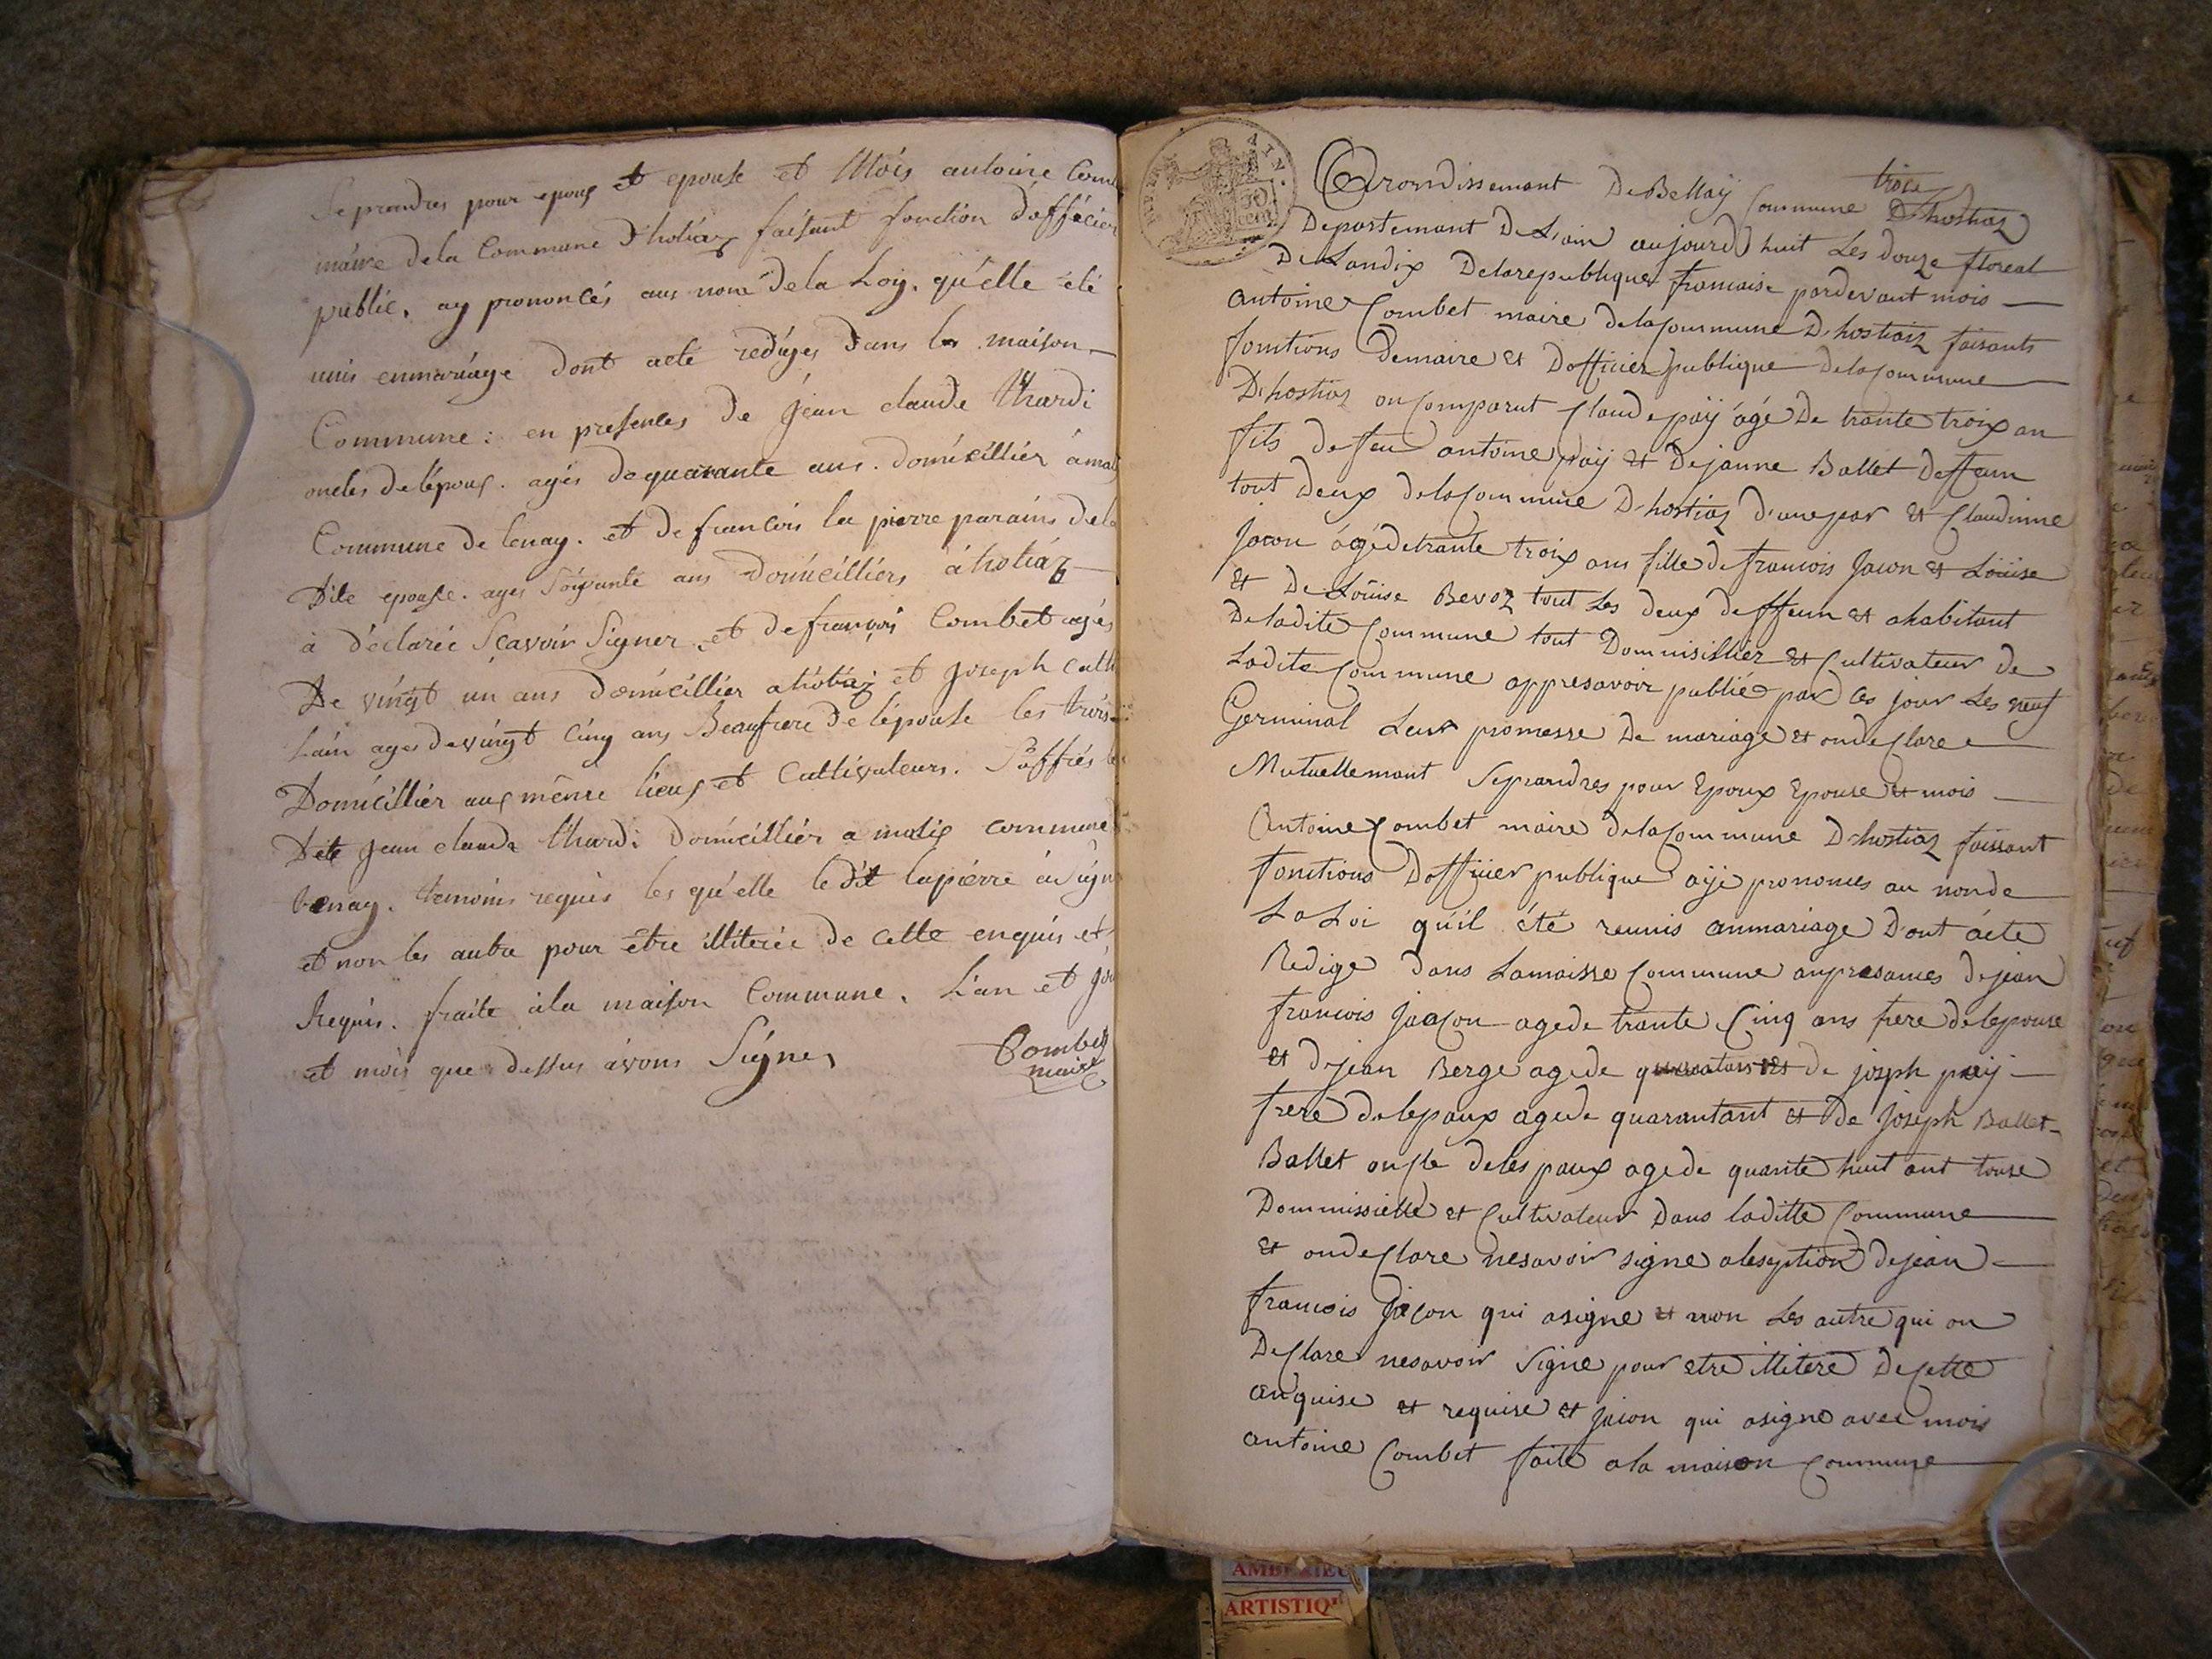 Se prendres pour epoux et epouse et Mois antoine Com
maire dela Commune d'hotiaz faisant fonction d'officier
public, ay prononcés aux nom dela Loy, qu'elle été
unis enmariage dont acte rédiges dans la maison
Commune : en presences de jean claude thardi
oncles del'epoux. agés dequarante ans. domicillier à mal
Commune de tenay. et de francois la pierre parains dela
Dite epouse. agés Soixante ans domicilliers à hotiaz
à déclarée Scavoir Signer, et defrançois Combet agés
De vingt un ans domicillier a hotiaz et joseph call
Lain ages devingt Cinq ans Beaufrere de l'épouse les trois
Domicillier aux même lieux et Cultivateurs.
Dite jean claude thardi Domicillier a malix commune
tenay. temoins requis les qu'elle le dit lapierre à signe
et non les autre pour être illiterée de cette enquis et
Requis. fraite à la maison Commune. L'an et jou
et mois que dessus avons Signer
Combet
maire
AIN.
trois
Arrondissement De Bellaÿ Commune D'hostiaz
Departemant De L'ain aujourd'huit Les douze floreal
De Landix Delarepublique francaise pardevant mois
antoine Combet maire delaCommune D'hostiaz faisants
fonctions Demaire et Dofficier publique delaCommune
D'hostiaz on Comparut Claude paÿ agé De trante troix an
fils de feu antoine paÿ et Dejanne Ballet deffeun
tout deux delaCommune D'hostiaz d'une par et Claudinne
Jacon agédetrante troix ans fille de francois Jacon et Loüise
et De Loüise Bevoz tout Les deux deffeun et ahabitant
Deladite Commune tout Dommisillier et Cultivateur de
Ladite Commune appresavoir publié par ces jour Les neuf
Germinal Leur promesse De mariage et ondeClare
Mutuellemant Seprandres pour Epoux Epouse et mois
Antoine Combet maire delaCommune D'hostiaz faissant
fonctions Dofficier publique aÿe prononces au nonde
La Loi qu'il été reunis anmariage D'ont acte
Redige dans Lamaisse Commune anpresances dejean
francois Jaacon agede trante Cinq ans frere delepouse
et dejean Berge agede de joseph paÿ
frere delepaux agede quarantant et De Joseph Ballet
Ballet oncle deles paux agede quante huit ant touse
Dommissielle et Cultivateur Dans laditte Commune
et ondeClare nesavoir signe aleseption dejean
francois Jacon qui asigne et non Les autre qui on
DeClare nesavoir Signe pour etre illitere DeCette
anquise et requise et Jacon qui asigne avec mois
antoine Combet faite ala maison Commune
AMBERIEU
ARTISTIQ